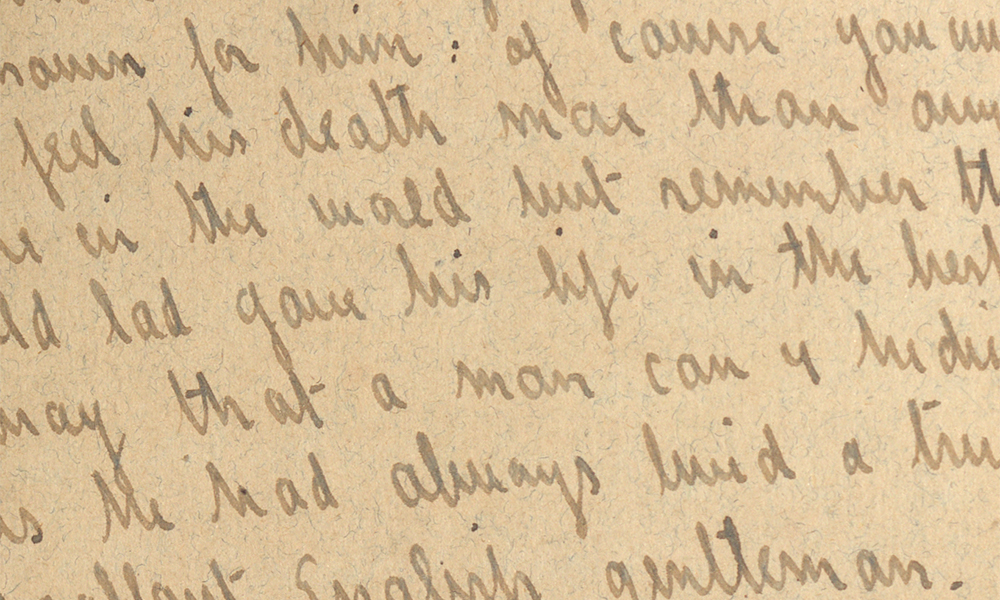 for him. Of course you
feel his death more than
in the world but remember
lad gave his life in the best
way that a man can & he died
as he had always lived a true
gallant English gentleman.